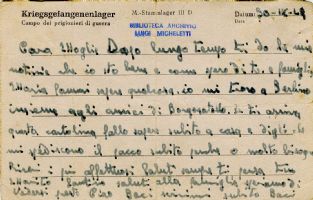 Kriegsgefangenenlager
Campo dei prigionieri di guerra
M.-Stammlager III D
Datum:
Data
BIBLIOTECA ARCHIVIO
LUIGI MICHELETTI
Cara Moglie Dopo lungo tempo ti do le mie
notizie che io sto bene come spero di te e famiglia
Maria fammi sapere qualcosa io mi trovo a Berlino
insieme agli amici di Borgosatollo se ti arriva
questa cartolina fallo sapere subito a casa e digli che
mi spediscono il pacco subito perche o molto bisogno
Ricevi i più affettuosi Saluti tuo
Marito saluti alla famiglia
Baci subito Baci